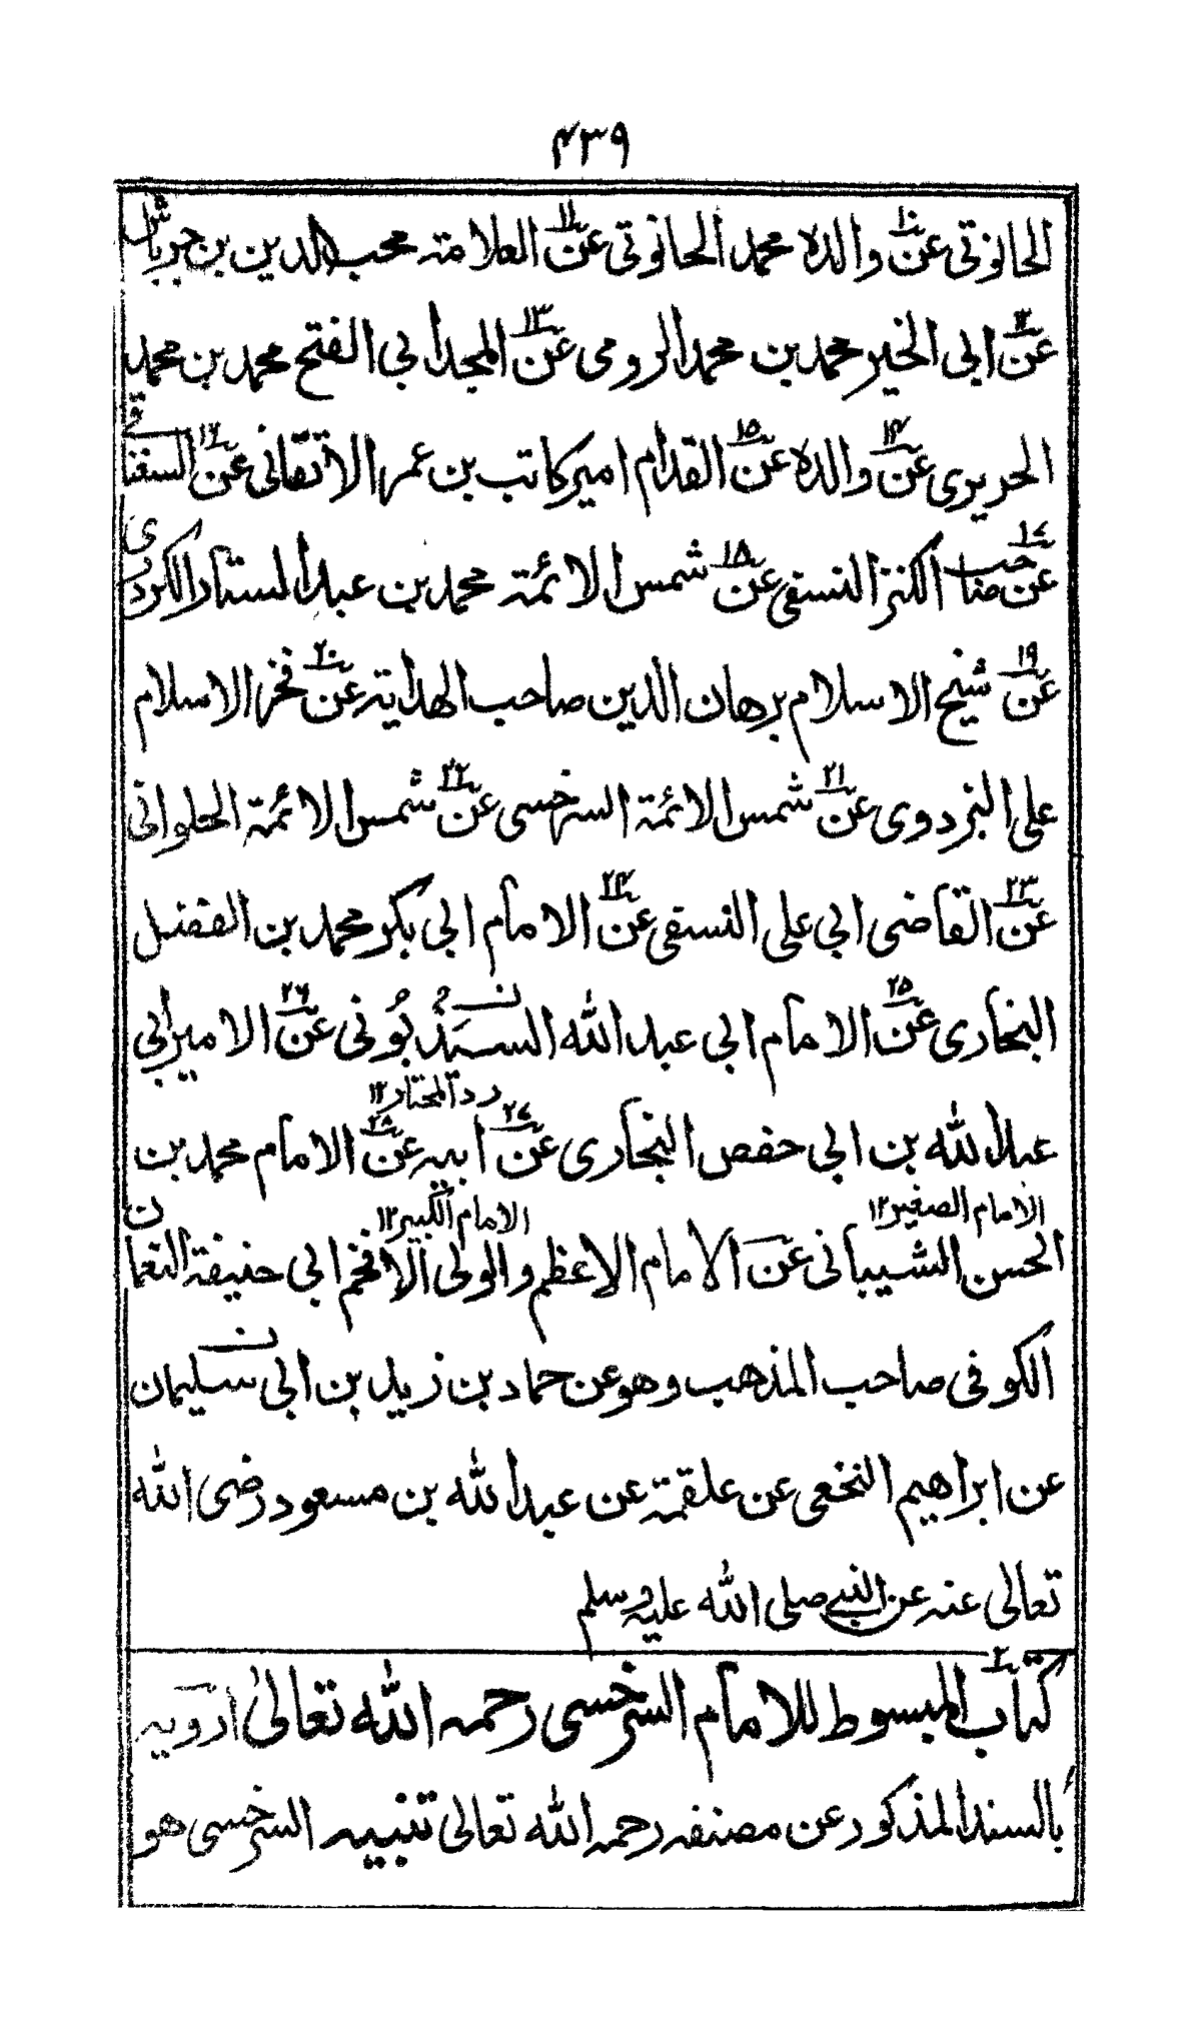 ۴۳۹
الحانوتی عن۱۰ والدہ محمد الحانوتی عن۱۱ العلامۃ محب الدین بن جرباش
عن۱۲ ابی الخیر محمد بن محمد الرومی عن۱۳ المجد ابی الفتح محمد بن محمد
الحریری عن۱۴ والدہ عن۱۵ القوام امیر کاتب بن عمر الاتقانی عن۱۶ السغناقی
عن۱۷ صاحب الکنز النسفی عن۱۸ شمس الائمۃ محمد بن عبد الستار الکردری
عن۱۹ شیخ الاسلام برھان الدین صاحب الھدایۃ عن۲۰ فخر الاسلام
علی البزدوی عن۲۱ شمس الائمۃ السرخسی عن۲۲ شمس الائمۃ الحلوانی
عن۲۳ القاضی ابی علی النسفی عن۲۴ الامام ابی بکر محمد بن الفضل
البخاری عن۲۵ الامام ابی عبد اللہ السَبَذْبُونی عن۲۶ الامیر ابی
ردالمحتار۱۲
عبد اللہ بن ابی حفص البخاری عن۲۷ ابیہ عن۲۸ الامام محمد بن
الامام الصغیر۱۲ الامام الکبیر۱۲
الحسن الشیبانی عن الامام الاعظم والولی الافخم ابی حنیفۃ النعمان
الکوفی صاحب المذھب وھو عن حماد بن زید بن ابی سلیمان
عن ابراھیم النخعی عن علقمۃ عن عبد اللہ بن مسعود رضی اللہ
تعالی عنہ عن النبی صلی اللہ علیہ وسلم
۲ کتاب المبسوط للامام السرخسی رحمہ اللہ تعالیٰ ارویہ
بالسند المذکور عن مصنفہ رحمہ اللہ تعالی تنبیہ السرخسی ھو